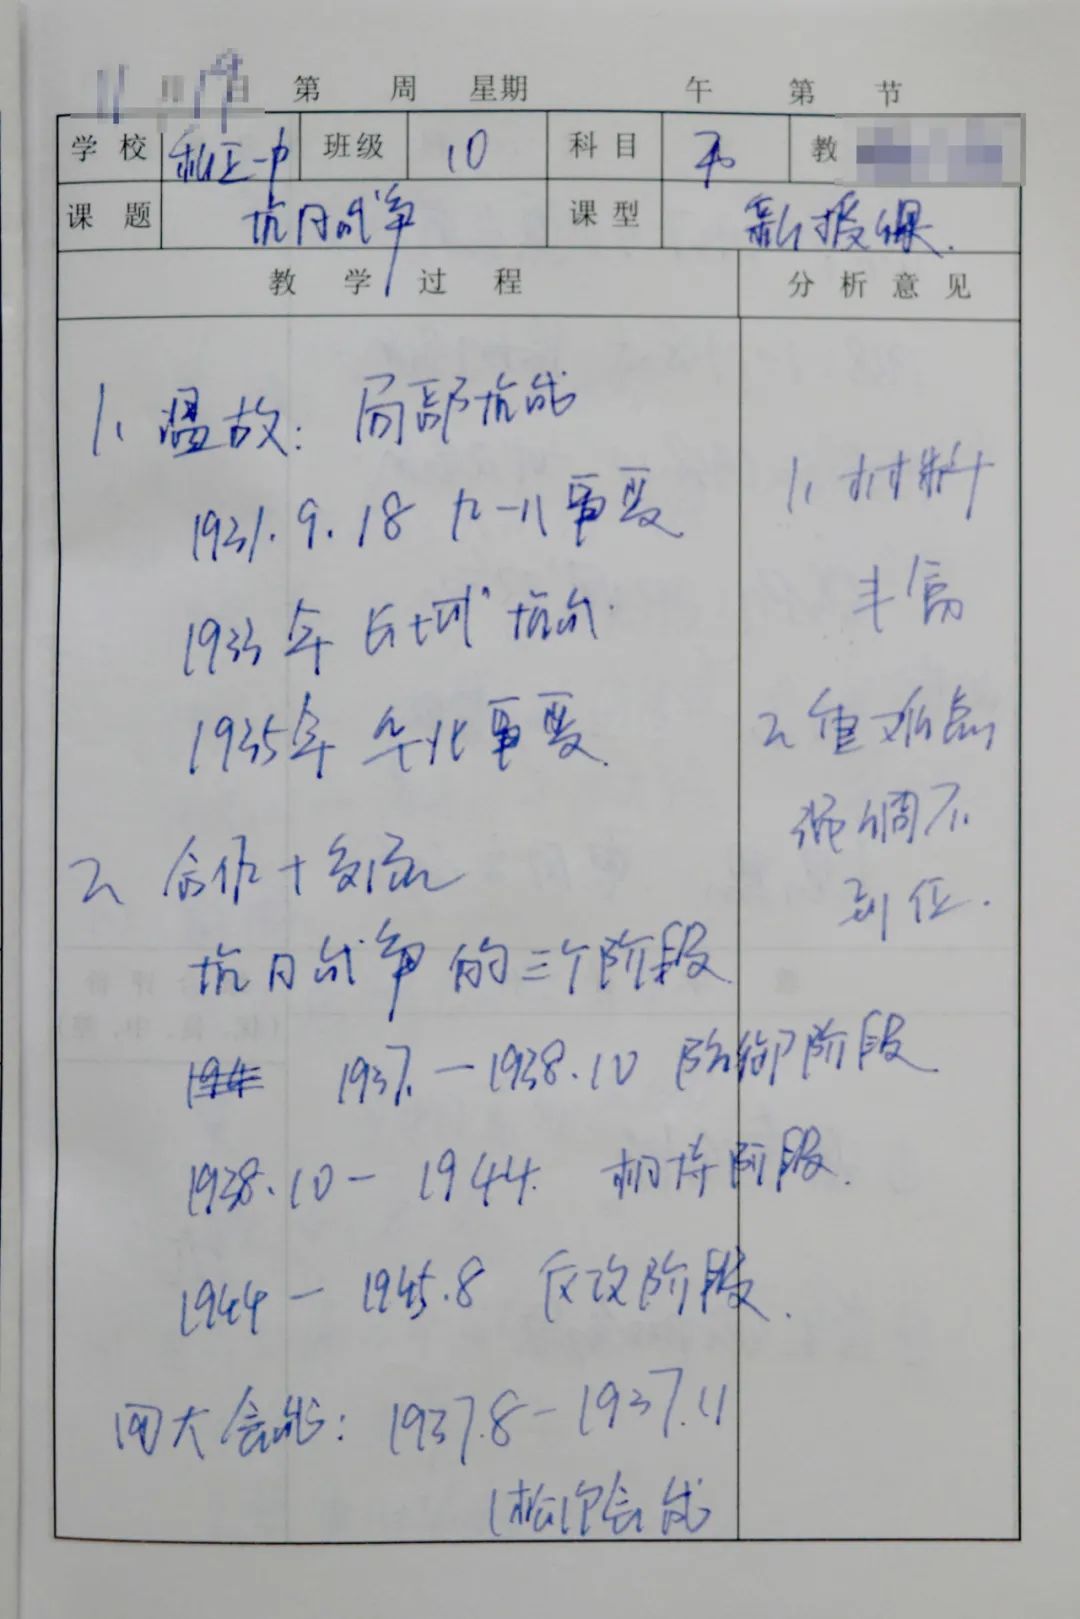 11月19日 第 周 星期 午 第 节
学校 班级 10 科目 历 教
课题 抗日战争 课型 新授课.
教学过程 分析意见
1、温故: 局部抗战
1931.9.18 九一八事变
1933年 长城抗战.
1935年 华北事变
2、合作+交流
抗日战争的三个阶段
1937. — 1938.10 防御阶段
1938.10 — 1944. 相持阶段.
1944 — 1945.8 反攻阶段.
四大会战: 1937.8 — 1937.11
(淞沪会战
1、材料
丰富
2、重难点
强调不
到位.